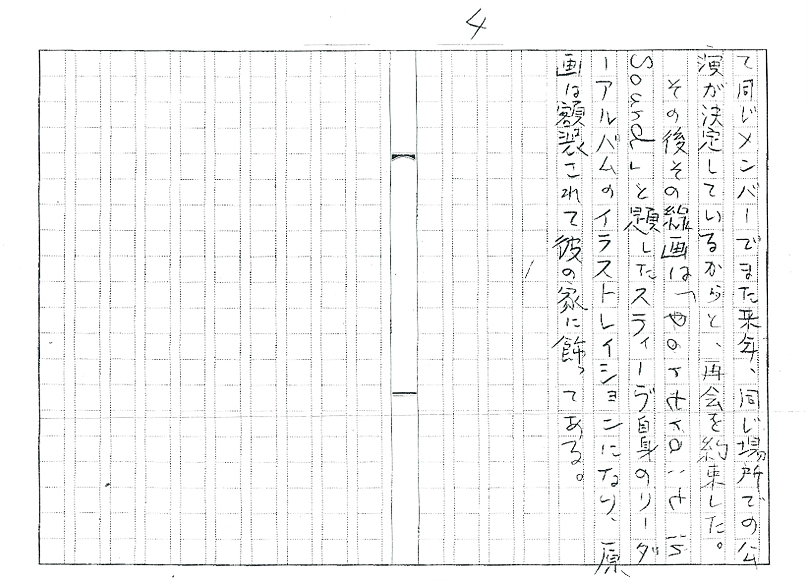 4
て同じメンバーでまた来年、同じ場所での公
演が決定しているからと、再会を約束した。
その後その線画は「
Sound」と題したスティーヴ自身のリーダ
ーアルバムのイラストレイションになり、原
画は額装されて彼の家に飾ってある。